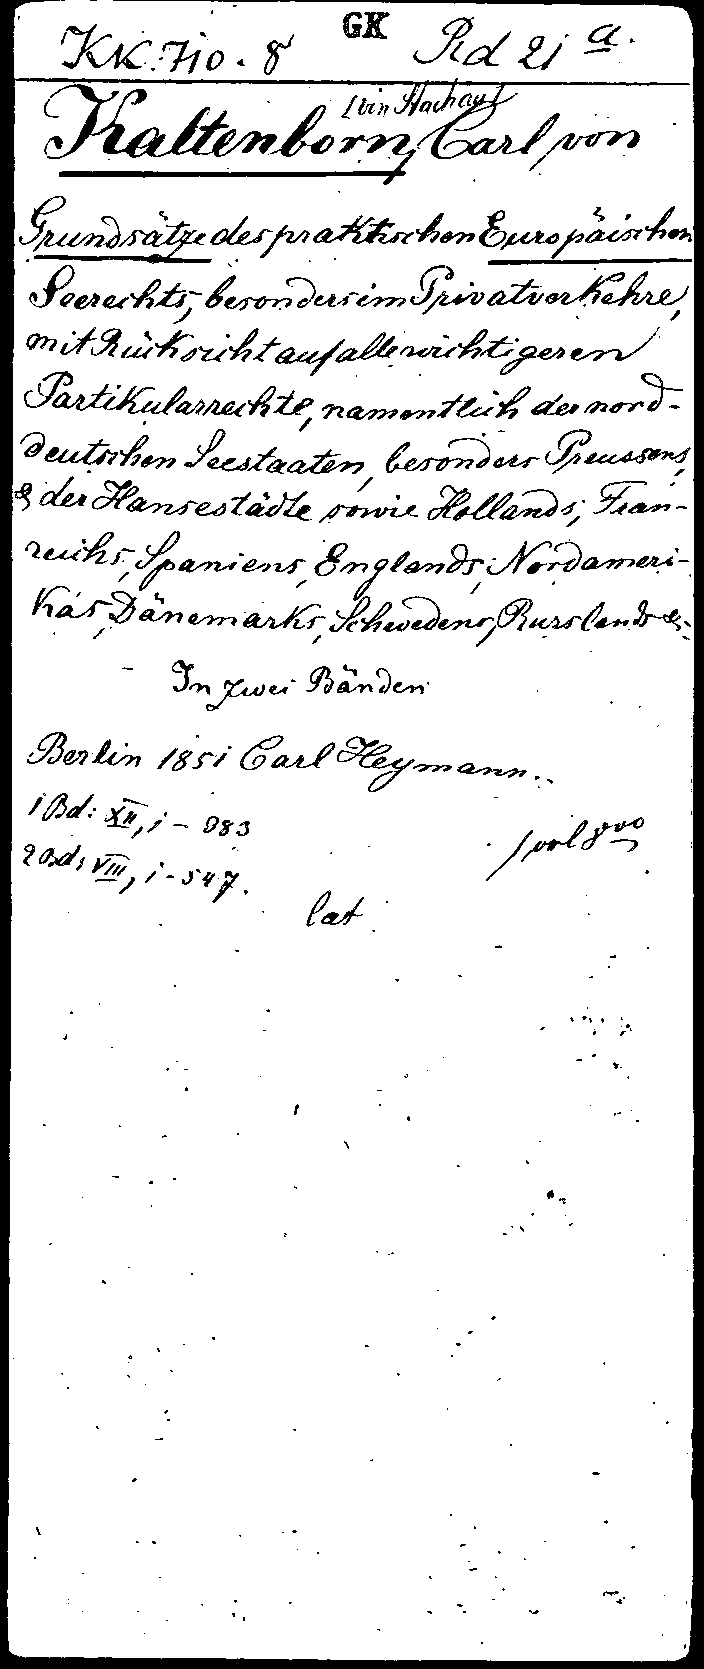 GK
KK.710.8 Rd 21 a.
Kaltenborn, Carl von
Grundsätze des praktischen Europäischen
Seerechts, besonders im Privatverkehre,
mit Rücksicht auf alle wichtigeren
Partikularrechte, namentlich der nord-
deutschen Seestaaten, besonders Preussens,
& der Hansestädte sowie Hollands, Fran-
reichs, Spaniens, Englands, Nordameri-
kas, Dänemarks, Schwedens, Russlands etc.
In zwei Bänden
Berlin 1851 Carl Heymann.
1 Bd: XII, 1-
2 Bd: VIII, 1-547.
1 vol 8vo
lat